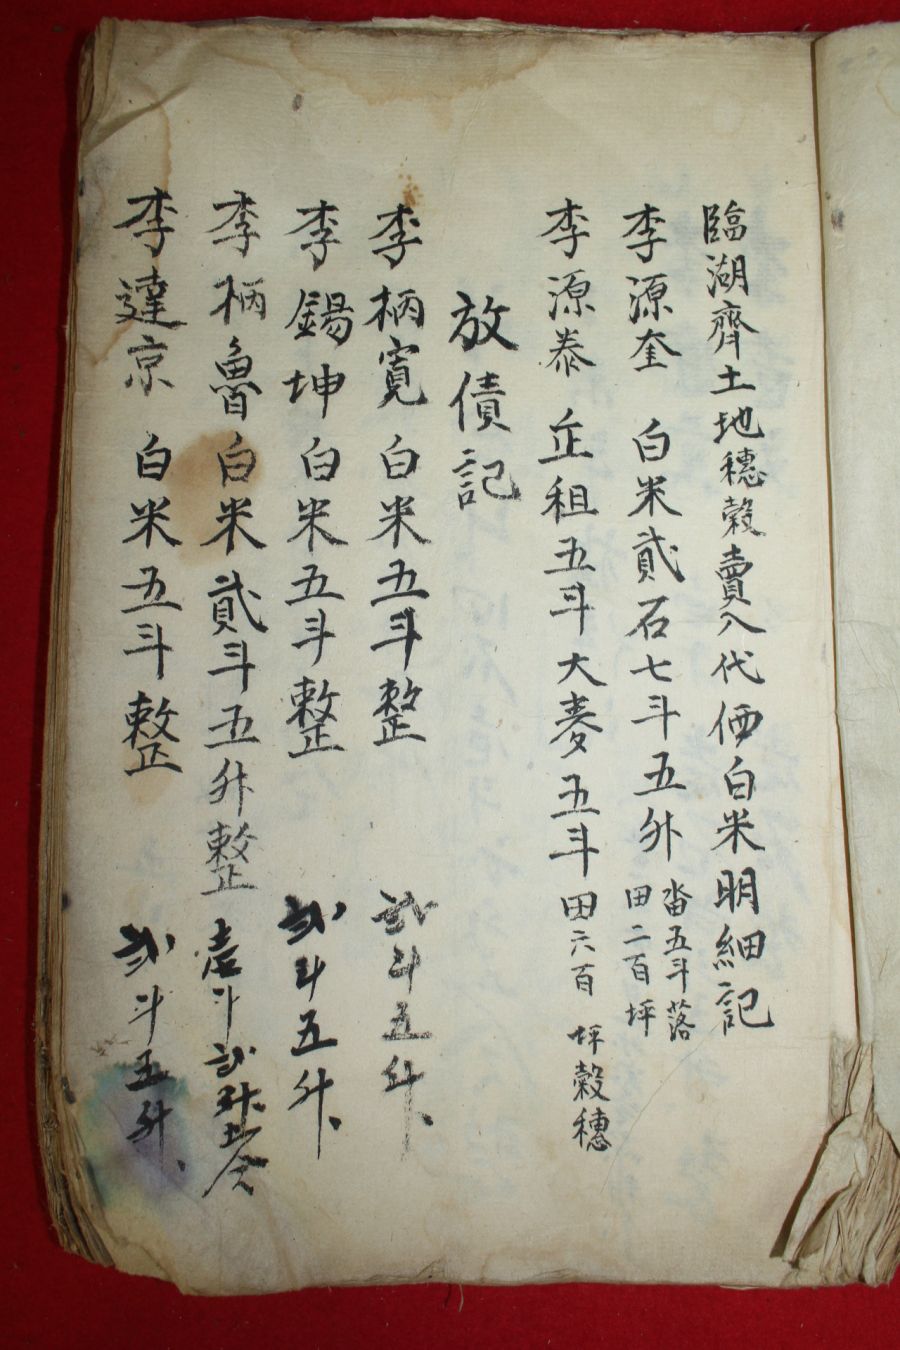 臨湖齊土地穗穀賣入代価白米明細記
李源奎 白米貳石七斗五升 畓五斗落 田二百坪
李源泰 正租五斗大麥五斗田六百坪穀穗
放債記
李柄寬白米五斗整 貳斗五升、
李錫坤白米五斗整 貳斗五升、
李柄魯白米貳斗五升整 壱斗貳升五合
李達京 白米五斗整 貳斗五升、